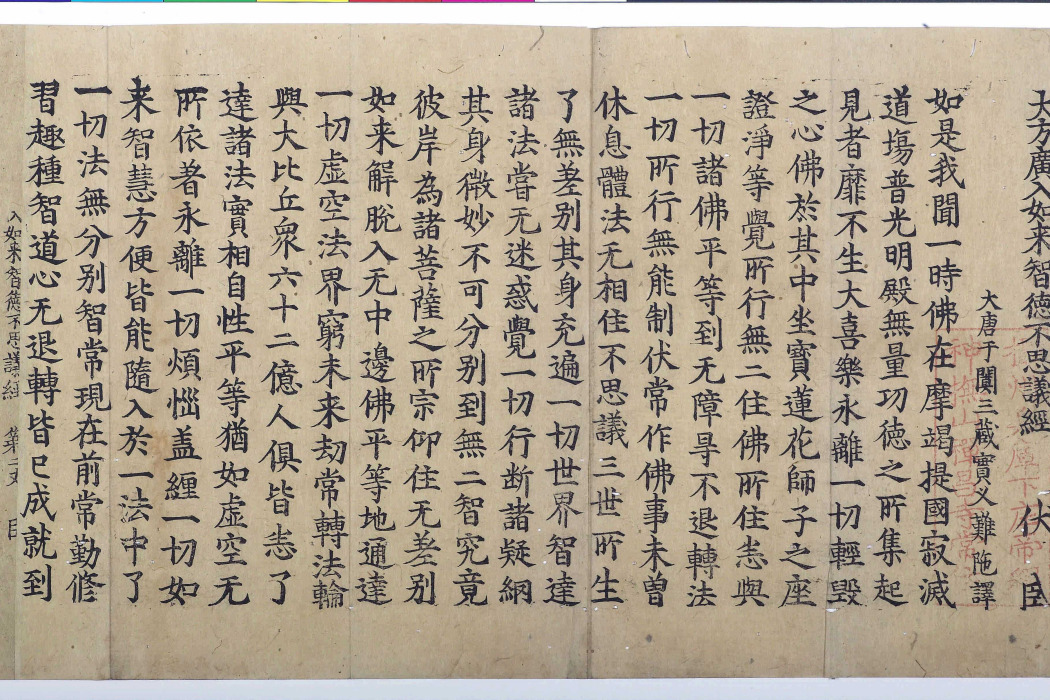 大方廣入如来智德不思議經 伏
大唐于闐三藏實叉難陁譯
如是我聞一時佛在摩竭提國寂滅
道塲普光明殿無量功德之所集起
見者靡不生大喜樂永離一切輕毀
之心佛於其中坐寶蓮花師子之座
證淨等覺所行無二住佛所住悉與
一切諸佛平等到无障㝵不退轉法
一切所行無能制伏常作佛事未曽
休息體法无相住不思議三世所生
了無差別其身充遍一切世界智達
諸法甞无迷惑覺一切行断諸疑網
其身微妙不可分別到無二智究竟
彼岸為諸菩薩之所宗仰住无差別
如来解脫入无中邊佛平等地通達
一切虛空法界窮未来劫常轉法輪
與大比丘衆六十二億人俱皆悉了
達諸法實相自性平等猶如虛空无
所依著永離一切煩惱盖纏一切如
来智慧方便皆能隨入於一法中了
一切法無分別智常現在前常勤修
習趣種智道心无退轉皆已成就到
入如来智德不思議經